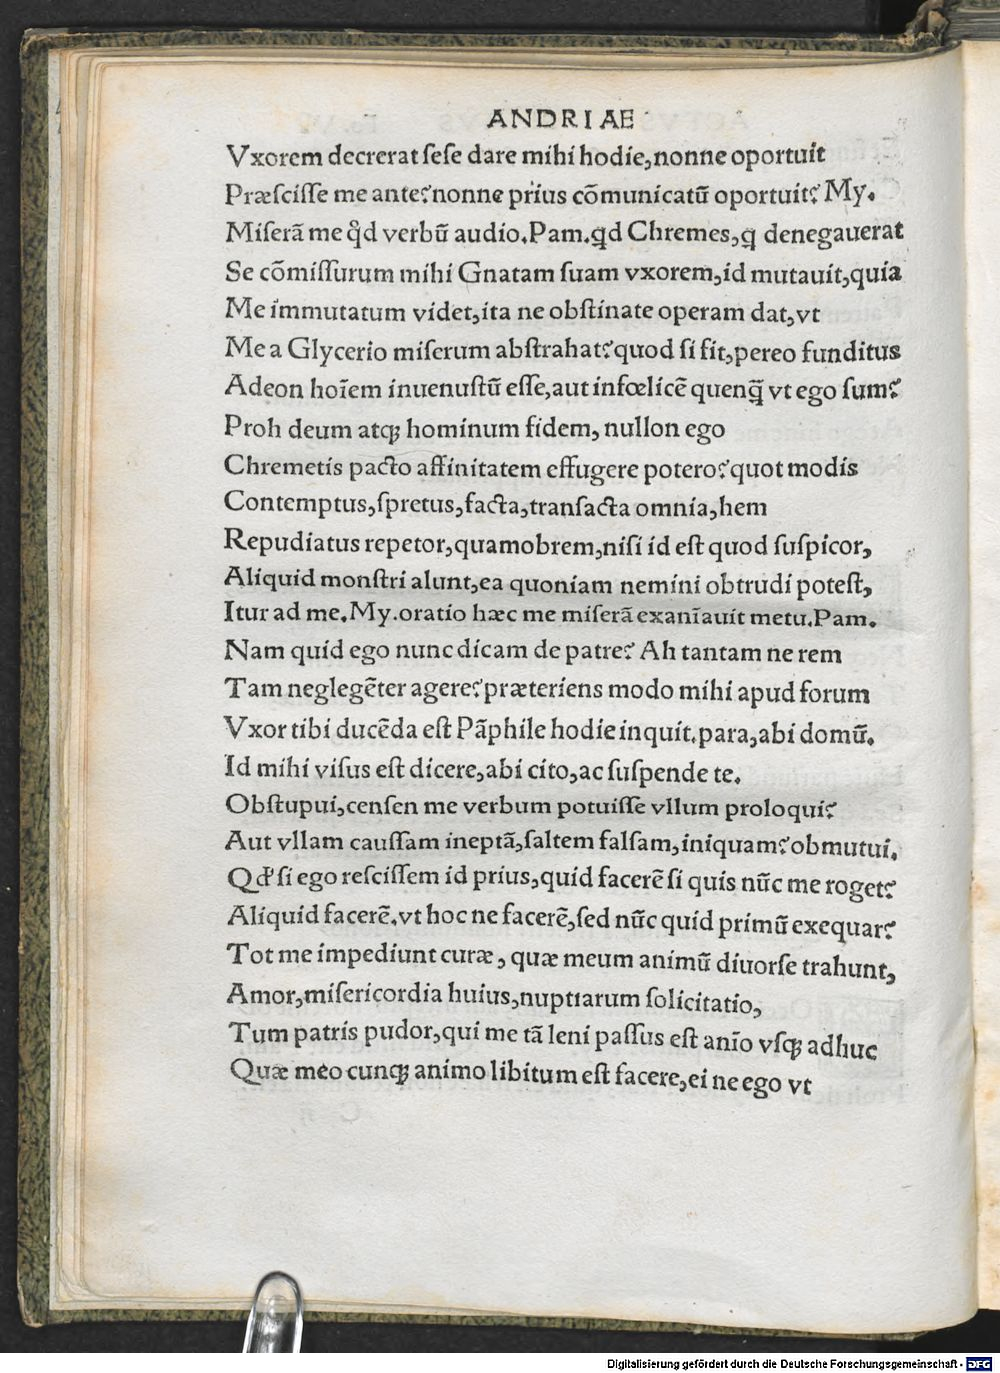 ANDRIAE
Vxorem decrerat ſeſe dare mihi hodie, nonne oportuit
Præſciſſe me ante? nonne prius cõmunicatũ oportuit? My.
Miſerã me qd verbũ audio. Pam. qd Chremes, q denegauerat
Se cõmiſſurum mihi Gnatam ſuam vxorem, id mutauit, quia
Me immutatum videt, ita ne obſtinate operam dat, vt
Me a Glycerio miſerum abſtrahat? quod ſi fit, pereo funditus
Adeon hoĩem inuenuſtũ eſſe, aut infœlicẽ quenq̃ vt ego ſum?
Proh deum atqꝫ hominum fidem, nullon ego
Chremetis pacto affinitatem effugere potero? quot modis
Contemptus, ſpretus, facta, tranſacta omnia, hem
Repudiatus repetor, quamobrem, niſi id eſt quod ſuſpicor,
Aliquid monſtri alunt, ea quoniam nemini obtrudi poteſt,
Itur ad me. My. oratio hæc me miſerã exanĩauit metu. Pam.
Nam quid ego nunc dicam de patre? Ah tantam ne rem
Tam neglegẽter agere? præteriens modo mihi apud forum
Vxor tibi ducẽda eſt Pãphile hodie inquit. para, abi domũ.
Id mihi viſus eſt dicere, abi cito, ac ſuſpende te.
Obſtupui, cenſen me verbum potuiſſe vllum proloqui?
Aut vllam cauſſam ineptã, ſaltem falſam, iniquam? obmutui.
Qd ſi ego reſciſſem id prius, quid facerẽ ſi quis nũc me roget?
Aliquid facerẽ. vt hoc ne facerẽ, ſed nũc quid primũ exequar?
Tot me impediunt curæ, quæ meum animũ diuorſe trahunt,
Amor, miſericordia huius, nuptiarum ſolicitatio,
Tum patris pudor, qui me tã leni paſſus eſt anĩo vſqꝫ adhuc
Quæ meo cunqꝫ animo libitum eſt facere, ei ne ego vt
Digitalisierung gefördert durch die Deutsche Forschungsgemeinschaft - DFG